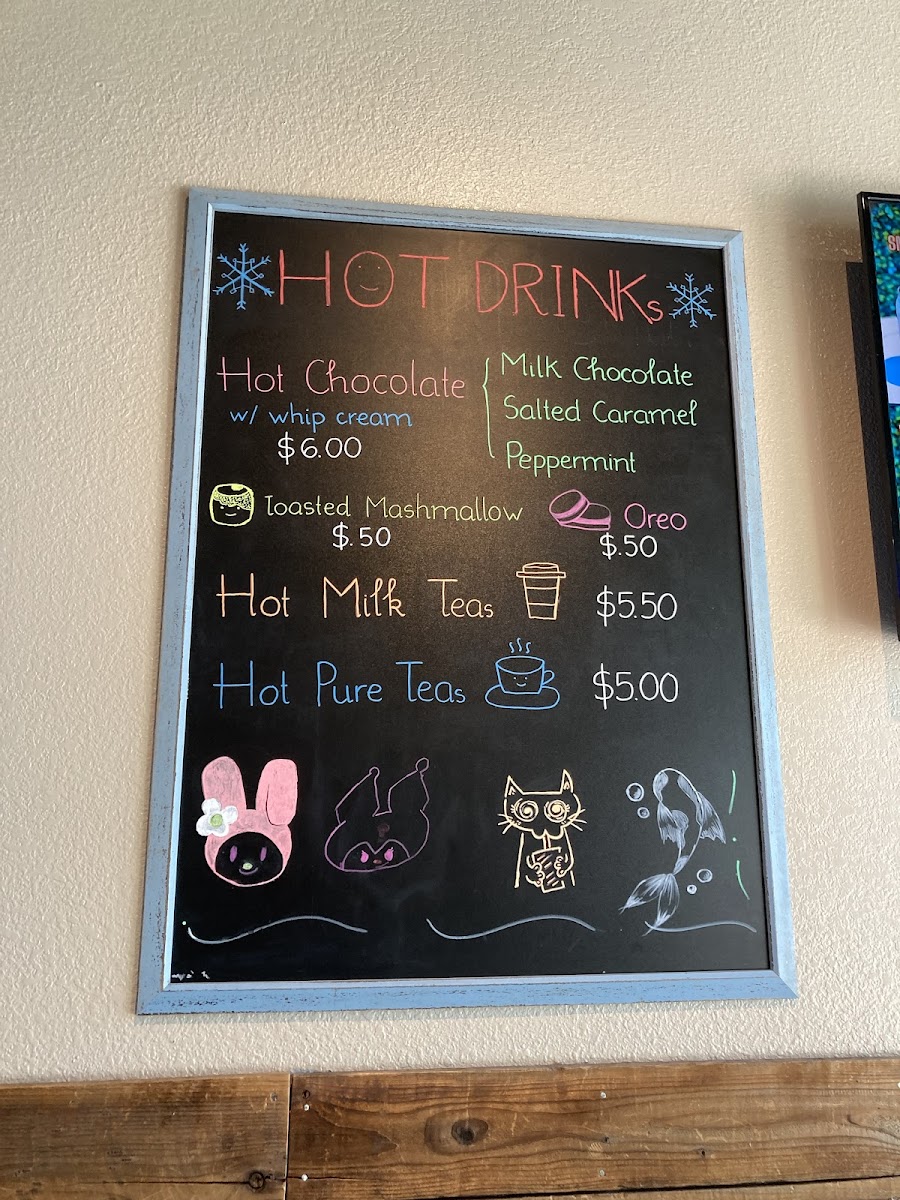 HOT DRINKs
Hot Chocolate
w/ whip cream
$6.00
Milk Chocolate
Salted Caramel
Peppermint
Toasted Mashmallow
$.50
Oreo
$.50
Hot Milk Teas $5.50
Hot Pure Teas $5.00